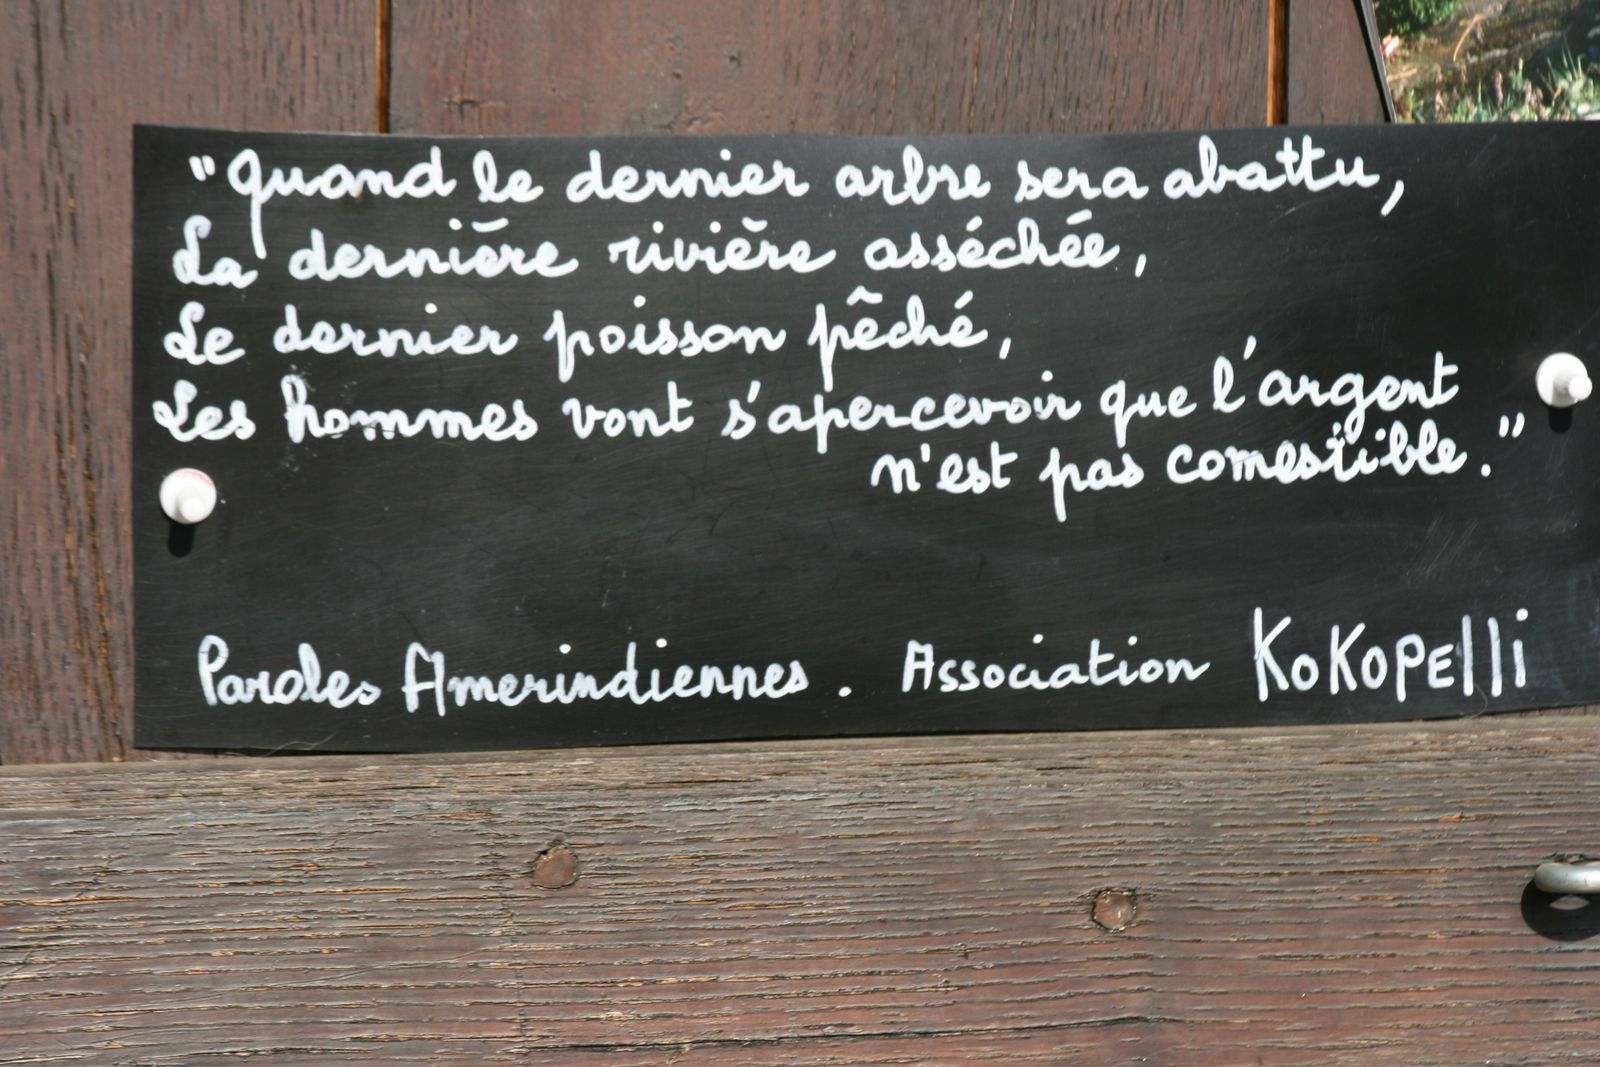 "Quand le dernier arbre sera abattu,
La dernière rivière asséchée,
Le dernier poisson pêché,
Les hommes vont s'apercevoir que l'argent
n'est pas comestible."
Paroles Amerindiennes. Association KoKoPElli